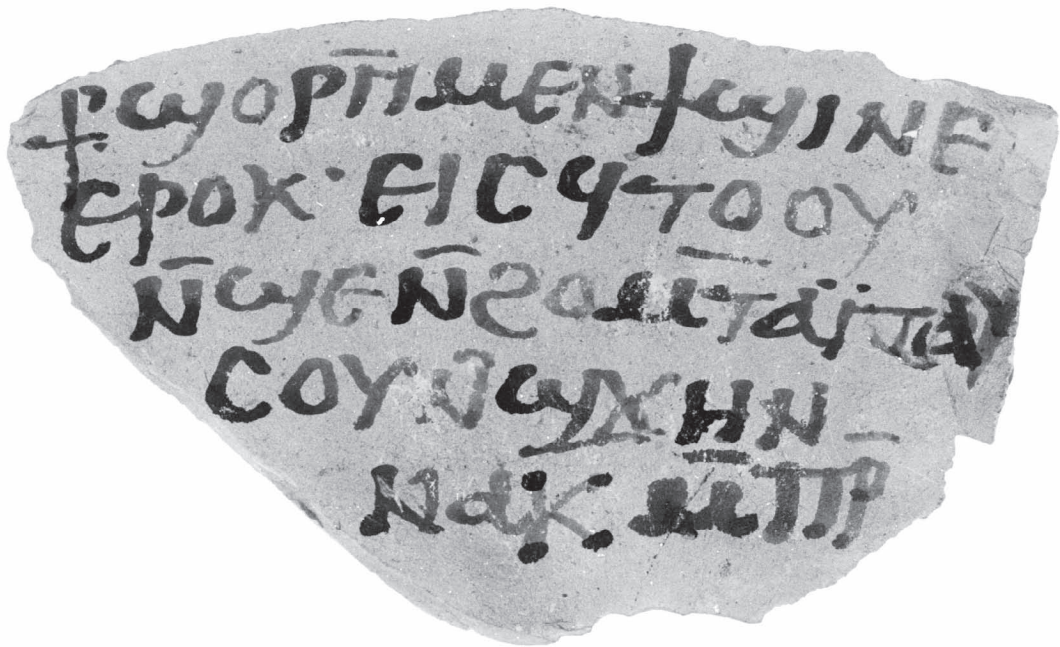 ⳨ϣⲟⲣⲡ̄ ⲙⲉⲛ ϯϣⲓⲛⲉ
ⲉⲣⲟⲕ· ⲉⲓⲥ ϥⲧⲟⲟⲩ
ⲛ̄ϣⲉ ⲛ̄ϩⲟⲙⲧ̄ ⲁⲓ̈ⲧⲁⲩ
ⲥⲟⲩ ⲛϣϫⲏⲛ
ⲛⲁⲕ ⲙ̄ⲡⲣ̄